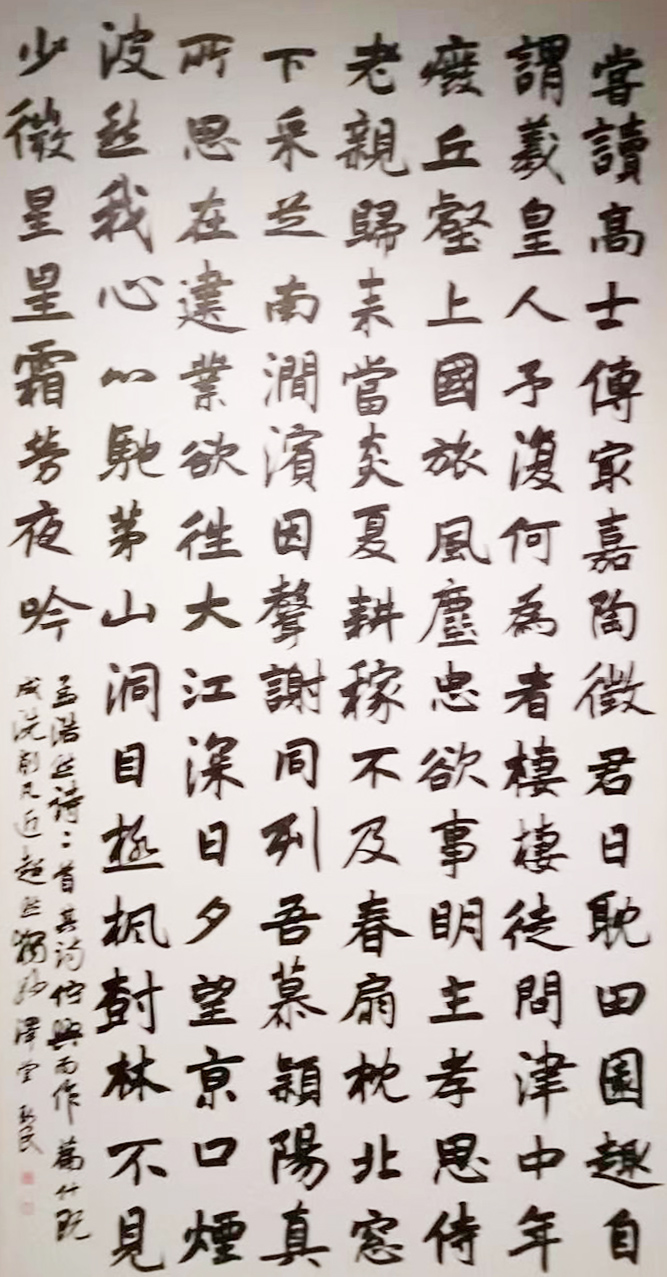 甞讀高士傳㝡嘉陶徵君日耽田園趣自
謂羲皇人予復何為者棲棲徒問津中年
廢丘壑上國旅風塵忠欲事明主孝思侍
老親歸来當炎夏耕稼不及春扇枕北窓
下采芝南澗濱因聲謝同列吾慕潁陽真
所思在建業欲往大江深日夕望亰口煙
波愁我心心馳茅山洞目極楓樹林不見
少微星星霜勞夜吟
孟浩然詩二首其詩佇興而作篇什既
成洗削凡近超然獨妙澤堂